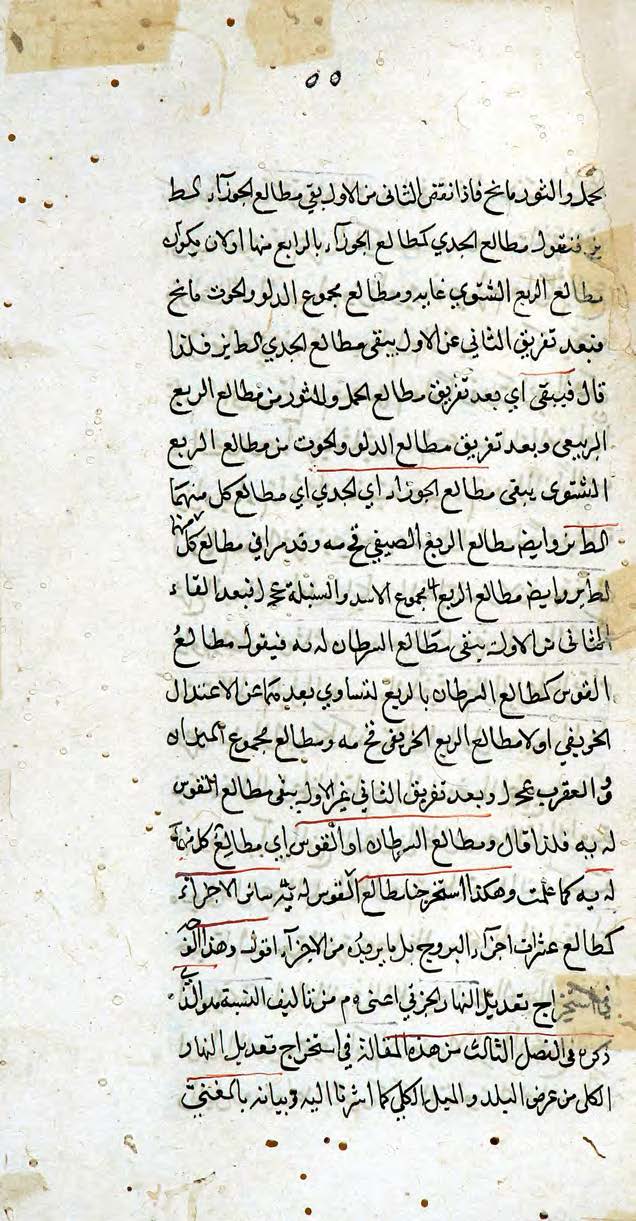 ٥٥
لحمل والثور مانح فاذا نقص الثاني من الاول بقي مطالع الجوزآء لط
يز فنقول مطالع الجدي كمطالع الجوزآء بالرابع منها او لان يكون
مطالع الربع الشتوي عابه ومطالع مجموع الدلو والحوت مانح
فبعد تفريق الثاني عن الاول يبقى مطالع الجدي لط يز فلذا
قال فيبقى اي بعد تفريق مطالع الحمل والثور من مطالع الربع
الربيعى وبعد تفريق مطالع الدلو والحوت من مطالع الربع
الشتوى يبقى مطالع الجوزاء اي الجدي اي مطالع كل منهما
لط يز وايضا مطالع الربع الصيفي قح مه وقد مر اني مطالع كل منها
لط يز وايضا مطالع الربع مجموع الاسد والسنبلة فبعد القاء
الثاني من الاول يبقى مطالع السرطان له يه فيقول مطالع
القوس كمطالع السرطان بالربع لتساوي بعدهما عن الاعتدال
الخريفي او لا مطالع الربع الخريفى قح مه ومطالع مجموع الميزان
والعقرب وبعد تفريق الثاني عن الاول يبقى مطالع القوس
له يه فلذا قال ومطالع السرطان او القوس اي مطالع كل منهما
له يه كما علمت وهكذا استخرجنا مطالع القوس له يه سائر الاجزاء
كمطالع عشرات اجزآء البروج بل ما يريده من الاجزآء اقول وهذا
في استخراج تعديل النهار الجزئي اعنى ه م من تاليف النسبة هو الذي
ذكره فى الفصل الثالث من هذه المقالة في استخراج تعديل النهار
الكلى من عرض البلد والميل الكلي كما اشرنا اليه وبيانه بالمغني